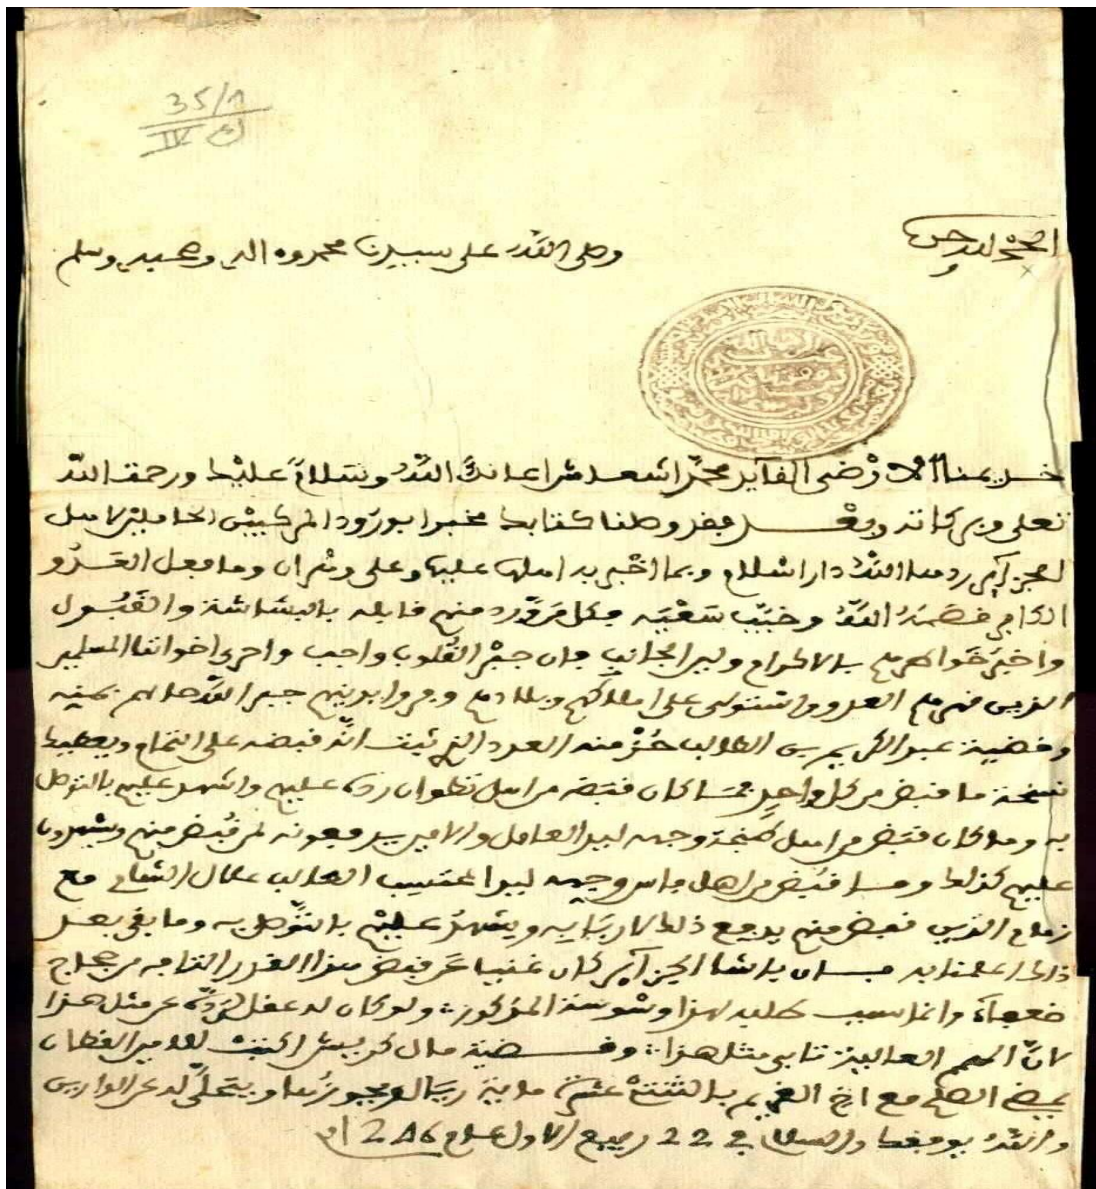 35/1
IV ك
الحمد لله وحده
وصلى الله على سيدنا محمد وءاله وصحبه وسلم
خديمنا الارضى القايد محمد اشعاش اعانك الله وسلام عليك ورحمت الله
تعلى وبركاته وبعد فقد وصلنا كتابك مخبرا بورود المركبين الحاملين لاهل
الجزاير ردها الله دار اسلام وبما اخبر به اهلها عليها وعلى وهران وما فعل العدو
الكافر قصمه الله وخيب سعيه فكل من ورد منهم قابله بالبشاشة والقبول
واختبر خواطرهم بالاكرام ولين الجانب فان جبر القلوب واجب واحرى اخواننا المسلمين
الذين قهرهم العدو واستولى على املاكهم وبلادهم وفروا بدينهم جبر الله حالهم بمنه
وقضية عبد الكريم بن الطالب حز منه العدد الذي ثبت انه قبضه على التمام ويعطيك
نسخة ما قبض من كل واحد فما كان قبض من اهل تطوان رده عليهم واشهد عليهم بالتوصل
به وما كان قبض من اهل طنجة وجهه لبد العامل والامين يدفعونه لمن قبض منهم ويشهدون
عليهم كذلك وما قبض من اهل فاس وجهه ليد المحتسب الطالب علال الشامي مع
زمام الذين قبض منهم يدفع ذلك لاربابه ويشهد عليهم بالتوصل به وما بقي بعد
ذلك اعلمنا به فان باشا الجزاير كان غنيا عن قبض هذا القدر التافه من حجاج
ضعفاء وانما سبب طلبه لهذا وشوسة المذكور ولو كان له عقل لرده عن مثل هذا
لان الهمم العالية تابى مثل هذا وقضية مال كربيش اكتب للامين القطان
يمضي الصلح مع اخ الغريم بالثنتي عشرة ماية ريال ويحوزها ويتحمل له عن الوارثين
والله يوفقك والسلام في 22 ربيع الاول عام 1246